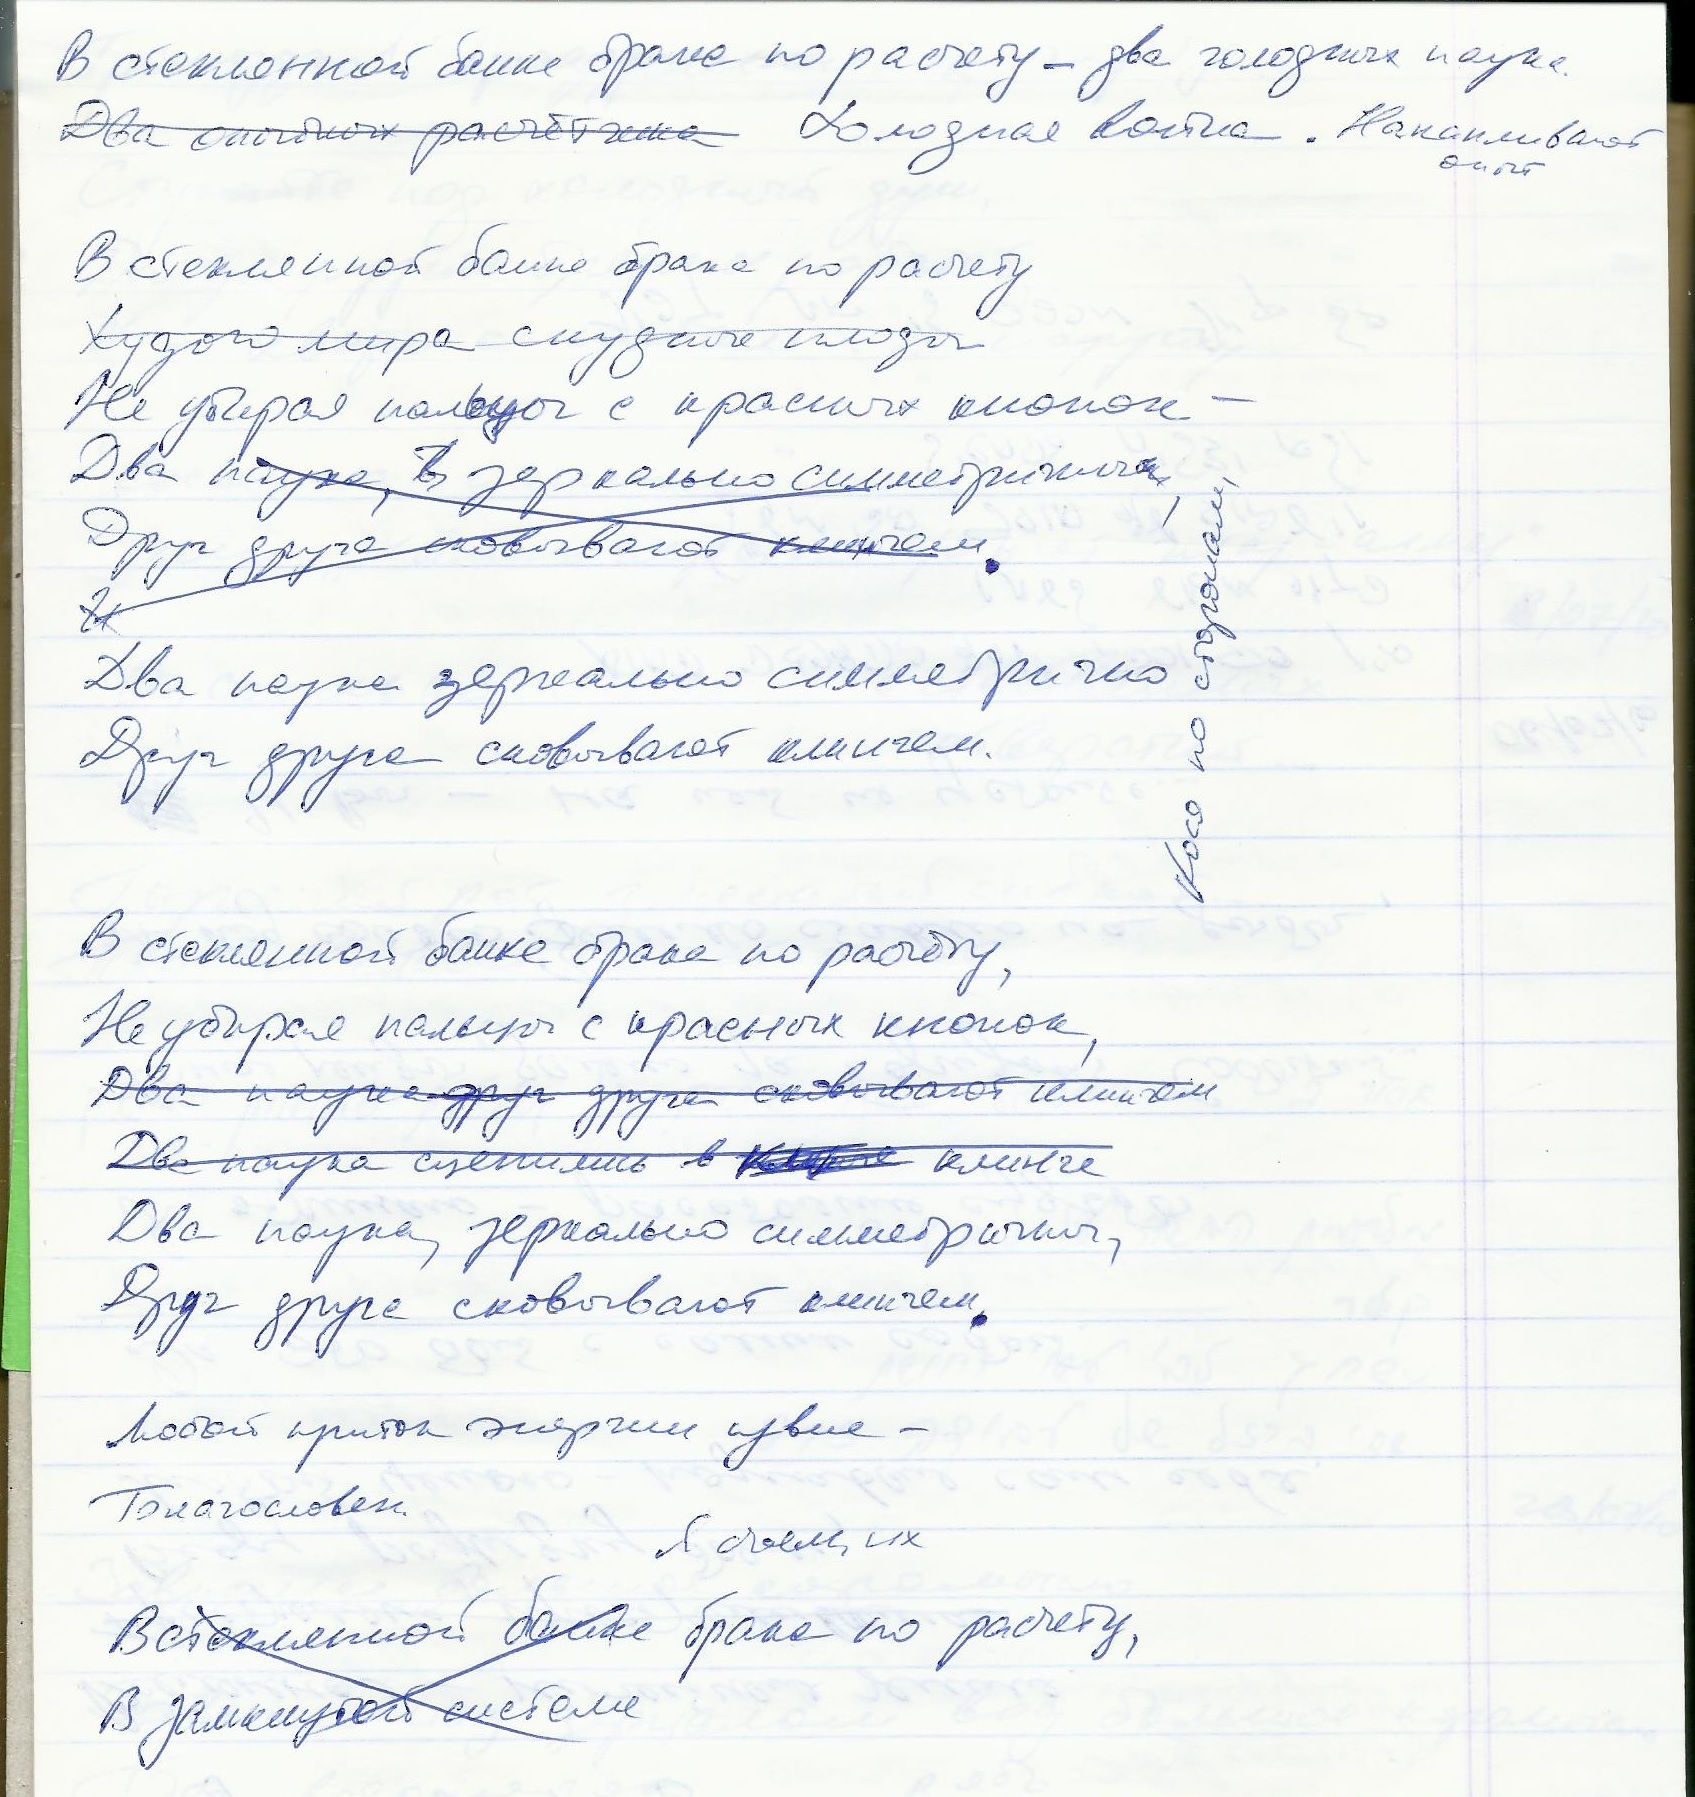 В стеклянной банке брака по расчету – два голодных паука.
Два опытных расчётчика Холодная война. Накапливают
опыт
В стеклянной банке брака по расчету
Худого мира скудные плоды
Не убирая пальцы с красных кнопок –
Два паука, в зеркально симметричных
Друг друга сковывают клинчем.
Два паука зеркально симметрично
Друг друга сковывают клинчем.
Кося по сторонам,
В стеклянной банке брака по расчёту,
Не убирая пальцы с красных кнопок,
Два паука друг друга сковывают клинчем
Два паука сцепились в клинче
Два паука, зеркально симметричны,
Друг друга сковывают клинчем.
Любой приток энергии извне –
Благословен.
В стеклянной банке брака по расчету,
В замкнутой системе